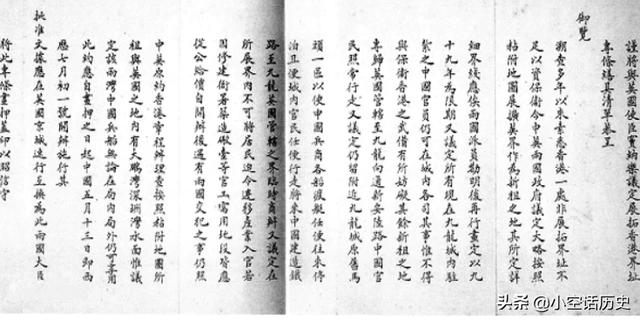 謹將與英國使臣竇納樂議定展拓香港界址
專條繕具清單恭呈
御覽
溯查多年以來素悉香港一處非展拓界址不
足以資保衛今中英兩國政府議定大略按照
粘附地圖展擴英界作為新租之地其所定詳
細界綫應俟兩國派員勘明後再行畫定以九
十九年為限期又議定所有現在九龍城內駐
紮之中國官員仍可在城內各司其事惟不得
與保衛香港之武備有所妨礙其餘新租之地
專歸英國管轄至九龍向通新安陸路中國官
民照常行走又議定仍留附近九龍城原舊馬
頭一區以便中國兵商各船渡艇任便往來停
泊且便城內官民任便行走將來中國建造鐵
路至九龍英國管轄之界臨時商辦又議定在
所展界內不可將居民迫令遷移產業入官若
因修建衙署築造礮臺等官工需用地段皆應
從公給價自開辦後遇有兩國交犯之事仍照
中英原約香港章程辦理查按照粘附地圖所
租與英國之地內有大鵬灣深圳灣水面惟議
定該兩灣中國兵船無論在局內局外仍可享用
此約應自畫押之日起中國五月十三日即西
曆七月初一號開辦施行其
批准文據應在英國京城速行互換為此兩國大臣
將此專條畫押蓋印以昭信守
头条 @小空话历史